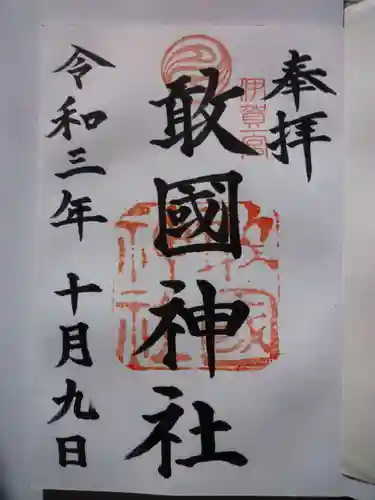 奉拝
伊賀一宮
敢國神社
令和三年 十月九日
敢國神社